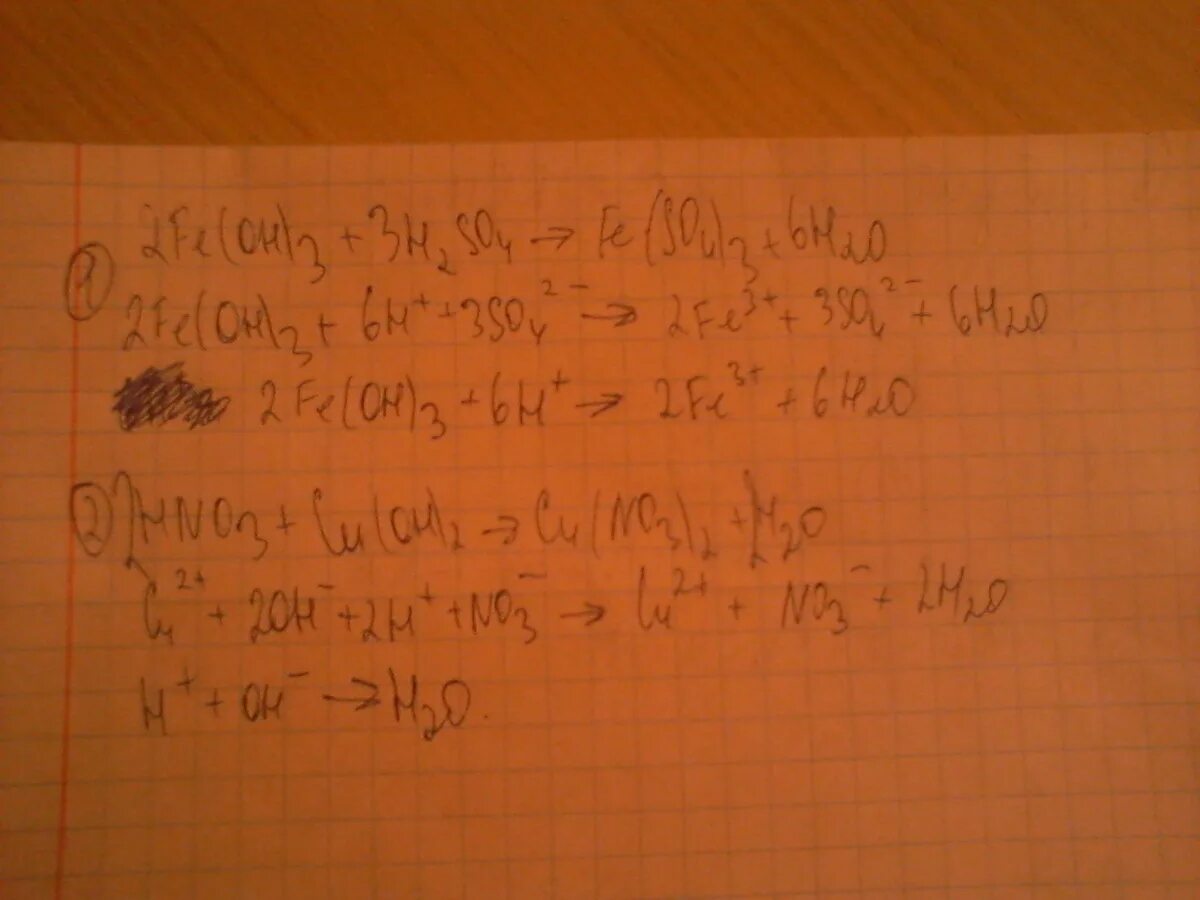 ① 2Fe(OH)₃ + 3H₂SO₄ → Fe(SO₄)₃ + 6H₂O
2Fe(OH)₃ + 6H⁺ + 3SO₄²⁻ → 2Fe³⁺ + 3SO₄²⁻ + 6H₂O
2Fe(OH)₃ + 6H⁺ → 2Fe³⁺ + 6H₂O
② 2HNO₃ + Cu(OH)₂ → Cu(NO₃)₂ + 2H₂O
Cu²⁺ + 2OH⁻ + 2H⁺ + NO₃⁻ → Cu²⁺ + NO₃⁻ + 2H₂O
H⁺ + OH⁻ → H₂O.